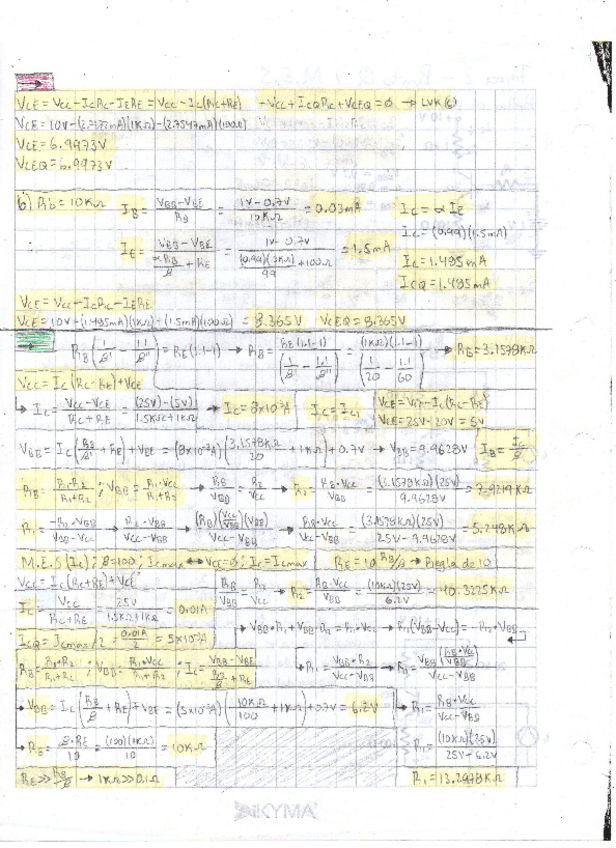 VCE = VCC - ICRC - IERE = VCC - IC(RC+RE)   -VCC + ICQRC + VCEQ = 0 → LVK
VCE = 10V - (2.7272mA)(1KΩ) - (2.7547mA)(100Ω)
VCE = 6.9973V
VCEQ = 6.9973V
b) Rb = 10KΩ   IB = (VBB - VBE)/RB = (1V - 0.7V)/10KΩ = 0.03mA   IC = α IE
IC = (0.99)(1.5mA)
∴ IE = (VBB - VBE)/(αRB/β + RE) = (1V - 0.7V)/((0.99)(1KΩ)/99 + 100Ω) = 1.5mA   IC = 1.495mA
ICQ = 1.495mA
VCE = VCC - ICRC - IERE
VCE = 10V - (1.495mA)(1KΩ) - (1.5mA)(100Ω) = 8.365V   VCEQ = 8.365V
RB(1/β' - 1.1/β'') = RE(1.1-1) → RB = RE(1.1-1)/(1/β' - 1.1/β'') = (1KΩ)(1.1-1)/(1/20 - 1.1/60) → RB = 3.1578KΩ
VCC = IC(RC-RE) + VCE
↳ IC = (VCC - VCE)/(RC+RE) = (25V)-(5V)/(1.5KΩ+1KΩ) → IC = 8x10⁻³A   IC = IC1   VCE = VCC - IC(RC-RE)
VCE = 25V - 20V = 5V
VBB = IC(RB/β' + RE) + VBE = (8x10⁻³A)(3.1578KΩ/20 + 1KΩ) + 0.7V → VBB = 9.9628V   IB = IC/β
RB = R1·R2/(R1+R2) ; VBB = R1·VCC/(R1+R2) → RB/VBB = R2/VCC → R2 = RB·VCC/VBB = (3.1578KΩ)(25V)/9.9628V = 7.9219KΩ
R1 = -R2·VBB/(VBB-VCC) → R2·VBB/(VCC-VBB) → (RB)(VCC/VBB)(VBB)/(VCC-VBB) → RB·VCC/(VCC-VBB) = (3.1578KΩ)(25V)/(25V-9.9628V) = 5.248KΩ
M.E.S (IC) ; β=100 ; ICmax ↔ VCE=0 ; IC = ICmax   RE = 10 RB/β → Regla de 10
VCC = IC(RC+RE) + VCE   RB/VBB = R2/VCC → R2 = RB·VCC/VBB = (10KΩ)(25V)/6.2V = 40.3225KΩ
IC = VCC/(RC+RE) = 25V/(1.5KΩ+1KΩ) = 0.01A
↳ VBB·R1 + VBB·R2 = R1·VCC → R1(VBB-VCC) = -R2·VBB
ICQ = ICmax/2 = 0.01A/2 = 5x10⁻³A
RB = R1·R2/(R1+R2) ; VBB = R1·VCC/(R1+R2) ; IC = (VBB-VBE)/(RB/β + RE)   → R1 = VBB·R2/(VCC-VBB) → R1 = VBB(RB·VCC/VBB)/(VCC-VBB)
→ VBB = IC(RB/β + RE) + VBE = (5x10⁻³A)(10KΩ/100 + 1KΩ) + 0.7V = 6.2V   → R1 = RB·VCC/(VCC-VBB)
→ RB = β·RE/10 = (100)(1KΩ)/10 = 10KΩ   R1 = (10KΩ)(25V)/(25V-6.2V)
RE >> RB/β → 1KΩ >> 0.1Ω   R1 = 13.2978KΩ
KYMA